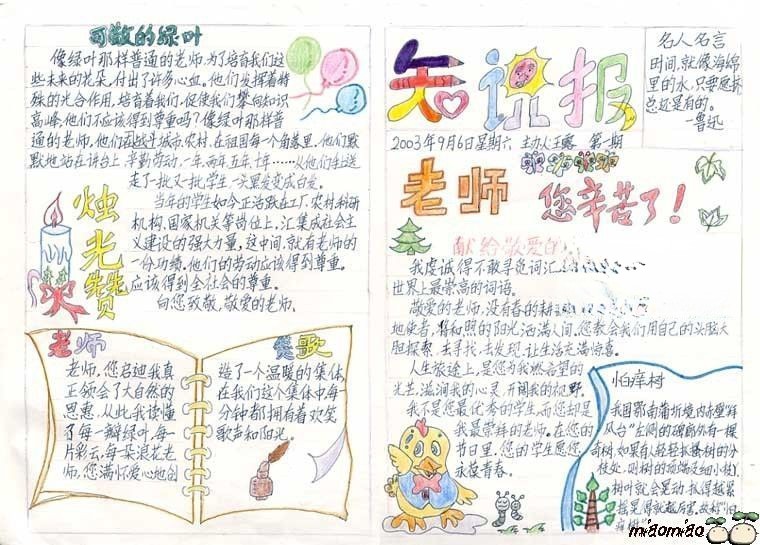 可敬的绿叶
像绿叶那样普通的老师,为了培育我们这
些未来的花朵,付出了许多心血。他们发挥着特
殊的光合作用,培育着我们,促使我们攀向知识
高峰,他们不应该得到尊重吗?像绿叶那样普
通的老师,他们城市、农村,在祖国每一个角落里,他们默
默地站在讲台上,辛勤劳动,一年两年五年十年……从他们手上送
走了一批又一批学生,一头黑发变成白发。
当年的学生如今正活跃在工厂、农村、科研
机构、国家机关等岗位上,汇集成社会主
义建设的强大力量,这中间,就有老师的
一份功绩,他们的劳动应该得到尊重。
应该得到全社会的尊重。
向您致敬,敬爱的老师。
烛光赞
老师
老师,您启迪我真
正领会了大自然的
恩惠,从此我读懂
了每一瓣绿叶,每一
片彩云,每朵浪花老
师,您满怀爱心地创
赞歌
造了一个温暖的集体,
在我们这个集体中每一
分钟都拥有着欢笑
歌声和阳光。
知识报
名人名言
时间,就像海绵
里的水,只要愿挤,
总还是有的。
—鲁迅
2003年9月6日星期六 主办人:王露 第一期
老师 您辛苦了!
献给敬爱的
我虔诚得不敢寻觅词汇
世界上最崇高的词语。
敬爱的老师,没有春的耕
地使者,将和照的阳光洒满人间。您教会我们用自己的头脑大
胆探索,去寻找、去发现,让生活充满惊喜。
人生旅途上,是您为我燃希望的
光芒,滋润我的心灵,开阔我的视野。
我不是您最优秀的学生,而您却是
我最崇拜的老师。在您的
节日里,您的学生愿您
永葆青春。
怕痒树
我国鄂南蒲圻境内赤壁“拜
风台”左侧的碑廊外有一棵
奇树,如果有人轻轻扒搔树的分
枝处,则树的顶端及细小枝
树叶就会晃动,抓得越紧
摇晃得就越厉害,故称“怕
痒树”
miaomiao